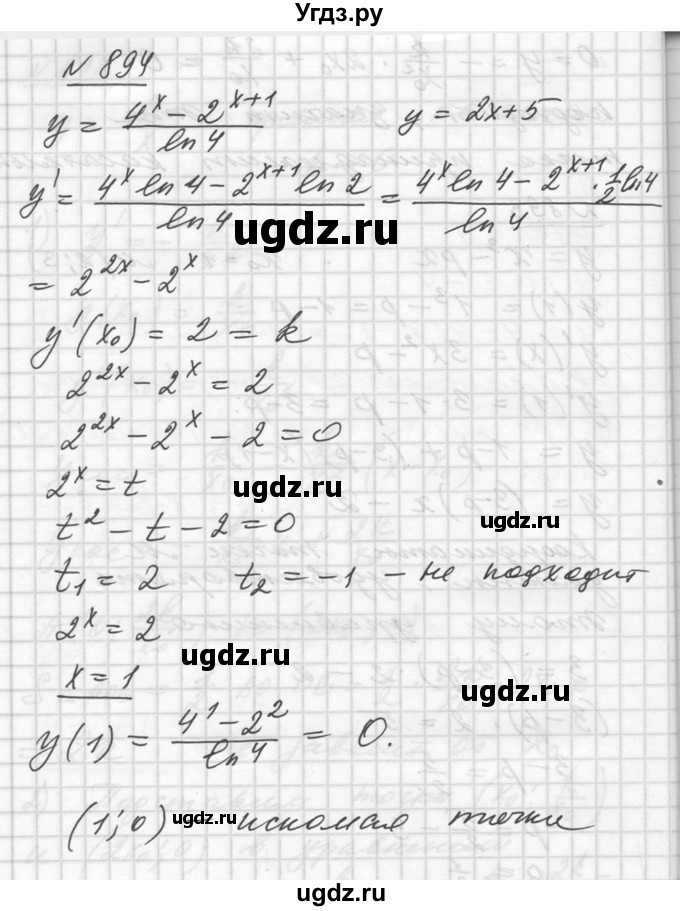 Угдз.ру
N 894
y = (4^x - 2^(x+1)) / ln 4    y = 2x+5
y' = (4^x ln 4 - 2^(x+1) ln 2) / ln 4 = (4^x ln 4 - 2^(x+1) · 1/2 ln 4) / ln 4
ugdz.ru
= 2^(2x) - 2^x
y'(x₀) = 2 = k
2^(2x) - 2^x = 2
2^(2x) - 2^x - 2 = 0
2^x = t
ugdz.ru
t² - t - 2 = 0
ugdz.ru
t₁ = 2    t₂ = -1 - не подходит
2^x = 2
ugdz.ru
x = 1
ugdz.ru
y(1) = (4¹ - 2²) / ln 4 = 0.
(1; 0) - искомая точка
ugdz.ru
ugdz.ru